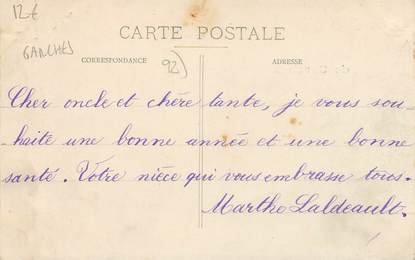 12€
GARCHES
92)
CARTE POSTALE
CORRESPONDANCE
ADRESSE
Cher oncle et chère tante, je vous sou-
haite une bonne année et une bonne
santé. Votre nièce qui vous embrasse tous.
Marthe Laldeault.